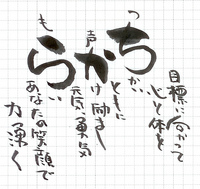 目標に向かって
心と体を
つちかい
ともに
声かけ励まし
元気勇気
もらい
あなたの笑顔で
力湧く